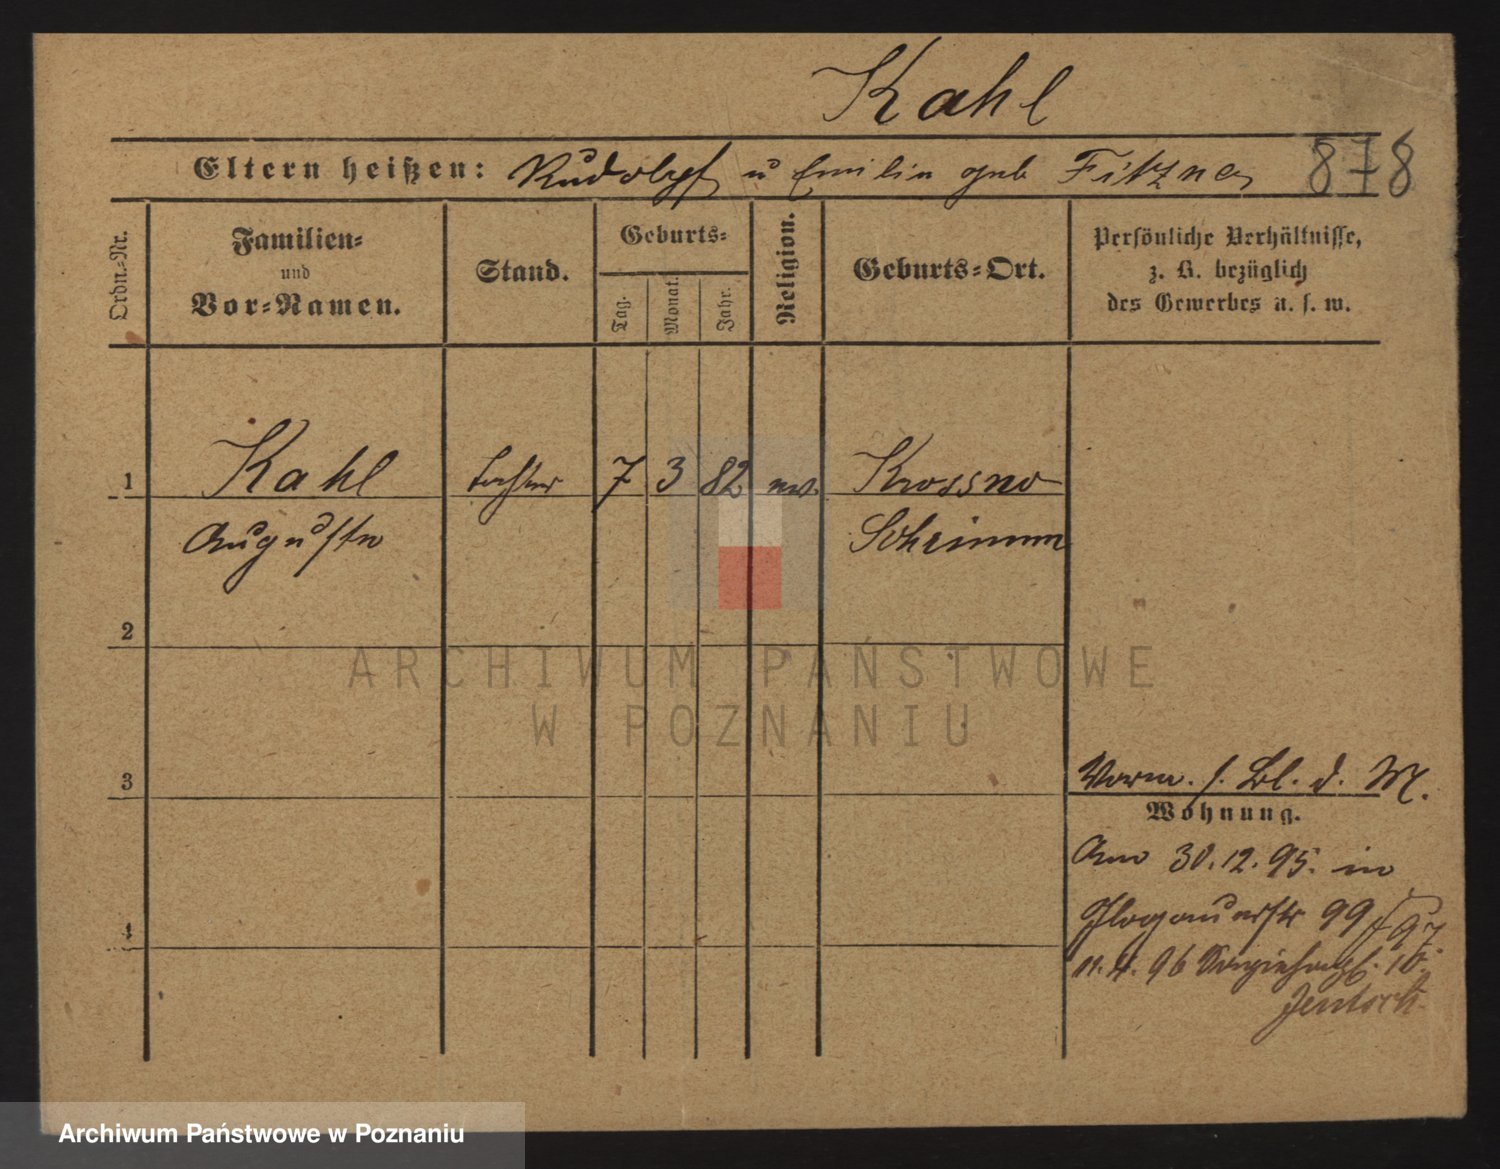 Kahl
Eltern heißen: Rudolph u Emilie geb Fitzner 878
Ordn.-Nr.
Familien-
und
Vor-Namen.
Stand.
Geburts-
Tag.
Monat.
Jahr.
Religion.
Geburts-Ort.
Persönliche Verhältnisse,
z. B. bezüglich
des Gewerbes u. s. w.
1 Kahl Tochter 7 3 82 ev. Krossno
Auguste Schrimm
2
ARCHIWUM PAŃSTWOWE
W POZNANIU
3
Vorm. s. Bl. d. M.
Wohnung.
Am 30.12.95. in
Glogauerstr 99
4
11.4.96
Archiwum Państwowe w Poznaniu